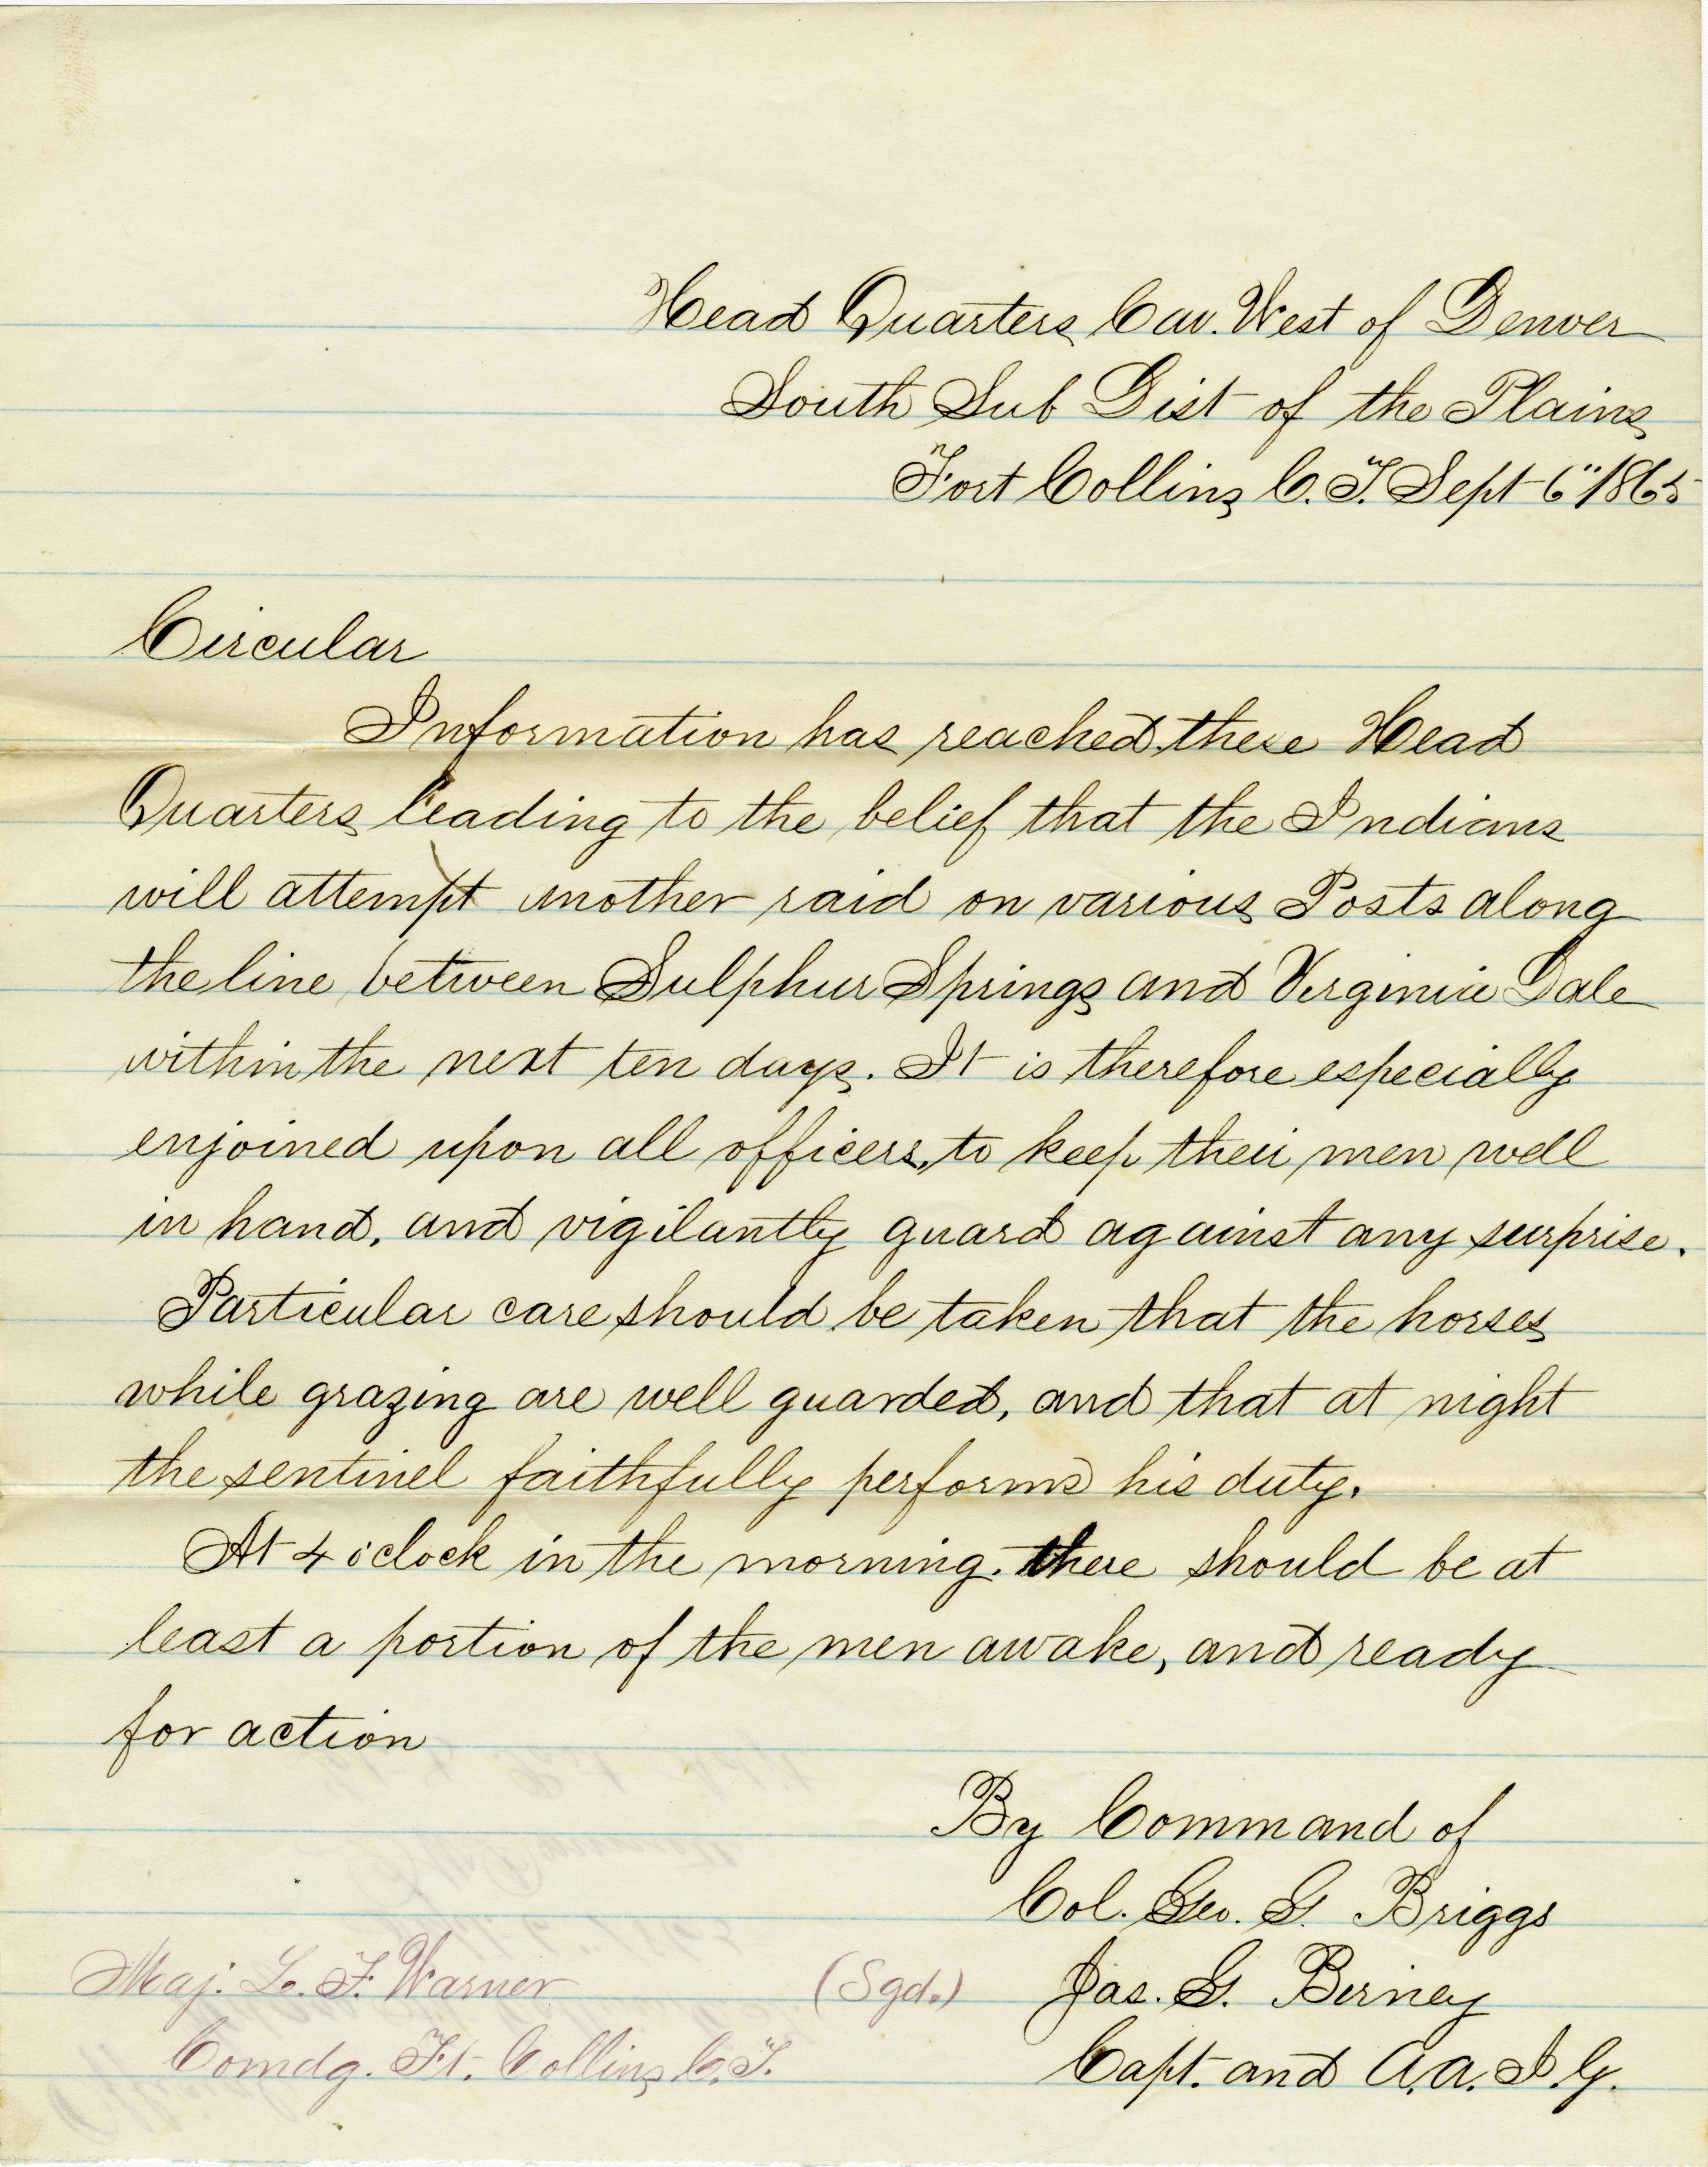 Head Quarters Cav. West of Denver
South Sub Dist of the Plains
Fort Collins C. T. Sept 6" 1865
Circular
Information has reached these Head
Quarters leading to the belief that the Indians
will attempt another raid on various Posts along
the line between Sulphur Springs and Virginia Dale
within the next ten days. It is therefore especially
enjoined upon all officers, to keep their men well
in hand, and vigilantly guard against any surprise.
Particular care should be taken that the horses
while grazing are well guarded, and that at night
the sentinel faithfully performs his duty.
At 4 o'clock in the morning. there should be at
least a portion of the men awake, and ready
for action
By Command of
Col. Geo. G. Briggs
(Sgd.) Jas. G. Birney
Capt. and A. A. I. G.
Maj. L. F. Warner
Comdg. Ft. Collins C. T.